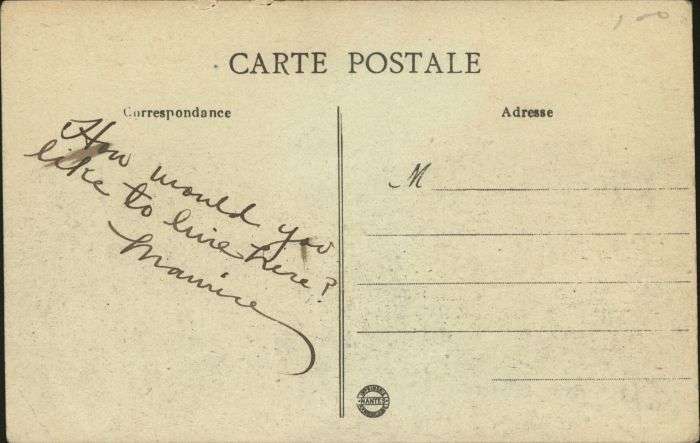 CARTE POSTALE
Correspondance
Adresse
How would you
like to live here?
Maurice
M
NANTES